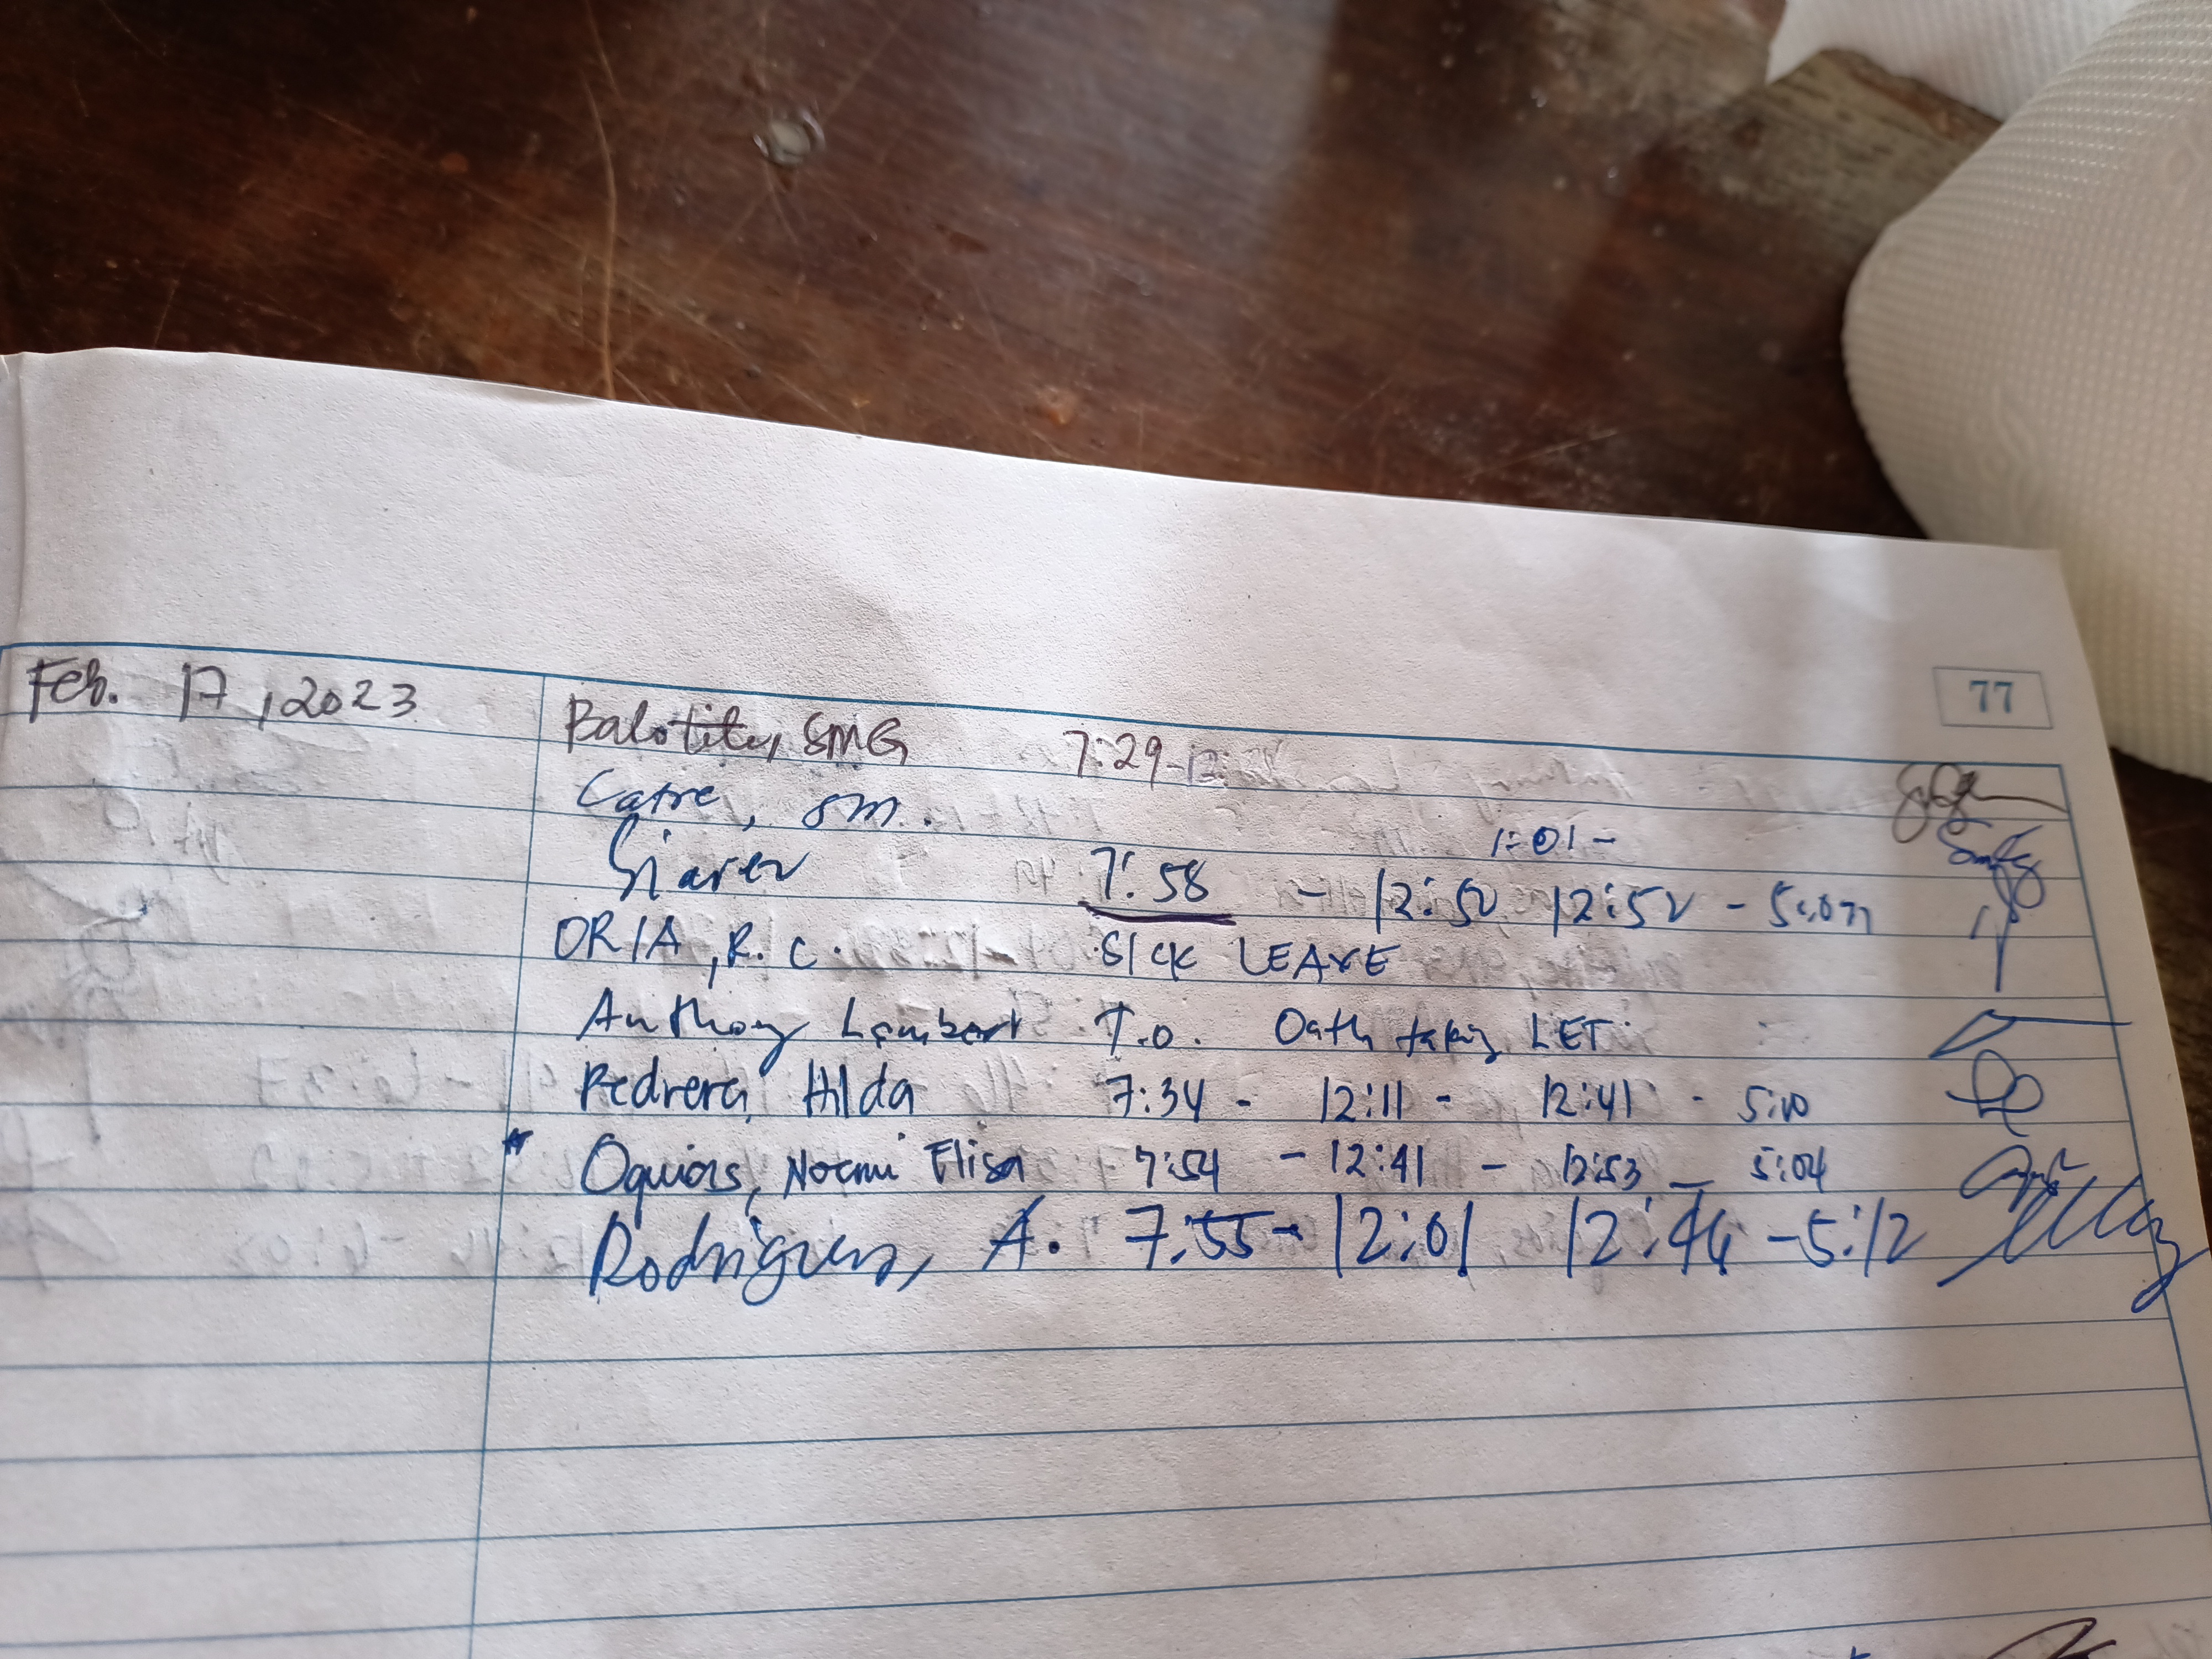 77
Feb. 17, 2023
Balotite, SMG 7:29-12:
Catre, SM. 1:01 -
Siarez 7:58 - 12:50 12:52 - 5:07
ORIA, R. C. SICK LEAVE
Anthony Lambert T.O. Oath taking LET
Pedrera, Hilda 7:34 - 12:11 - 12:41 - 5:10
Oquias, Noemi Elisa 7:54 - 12:41 - 12:53 - 5:04
Rodriguez, A. 7:55 - 12:01 12:46 - 5:12